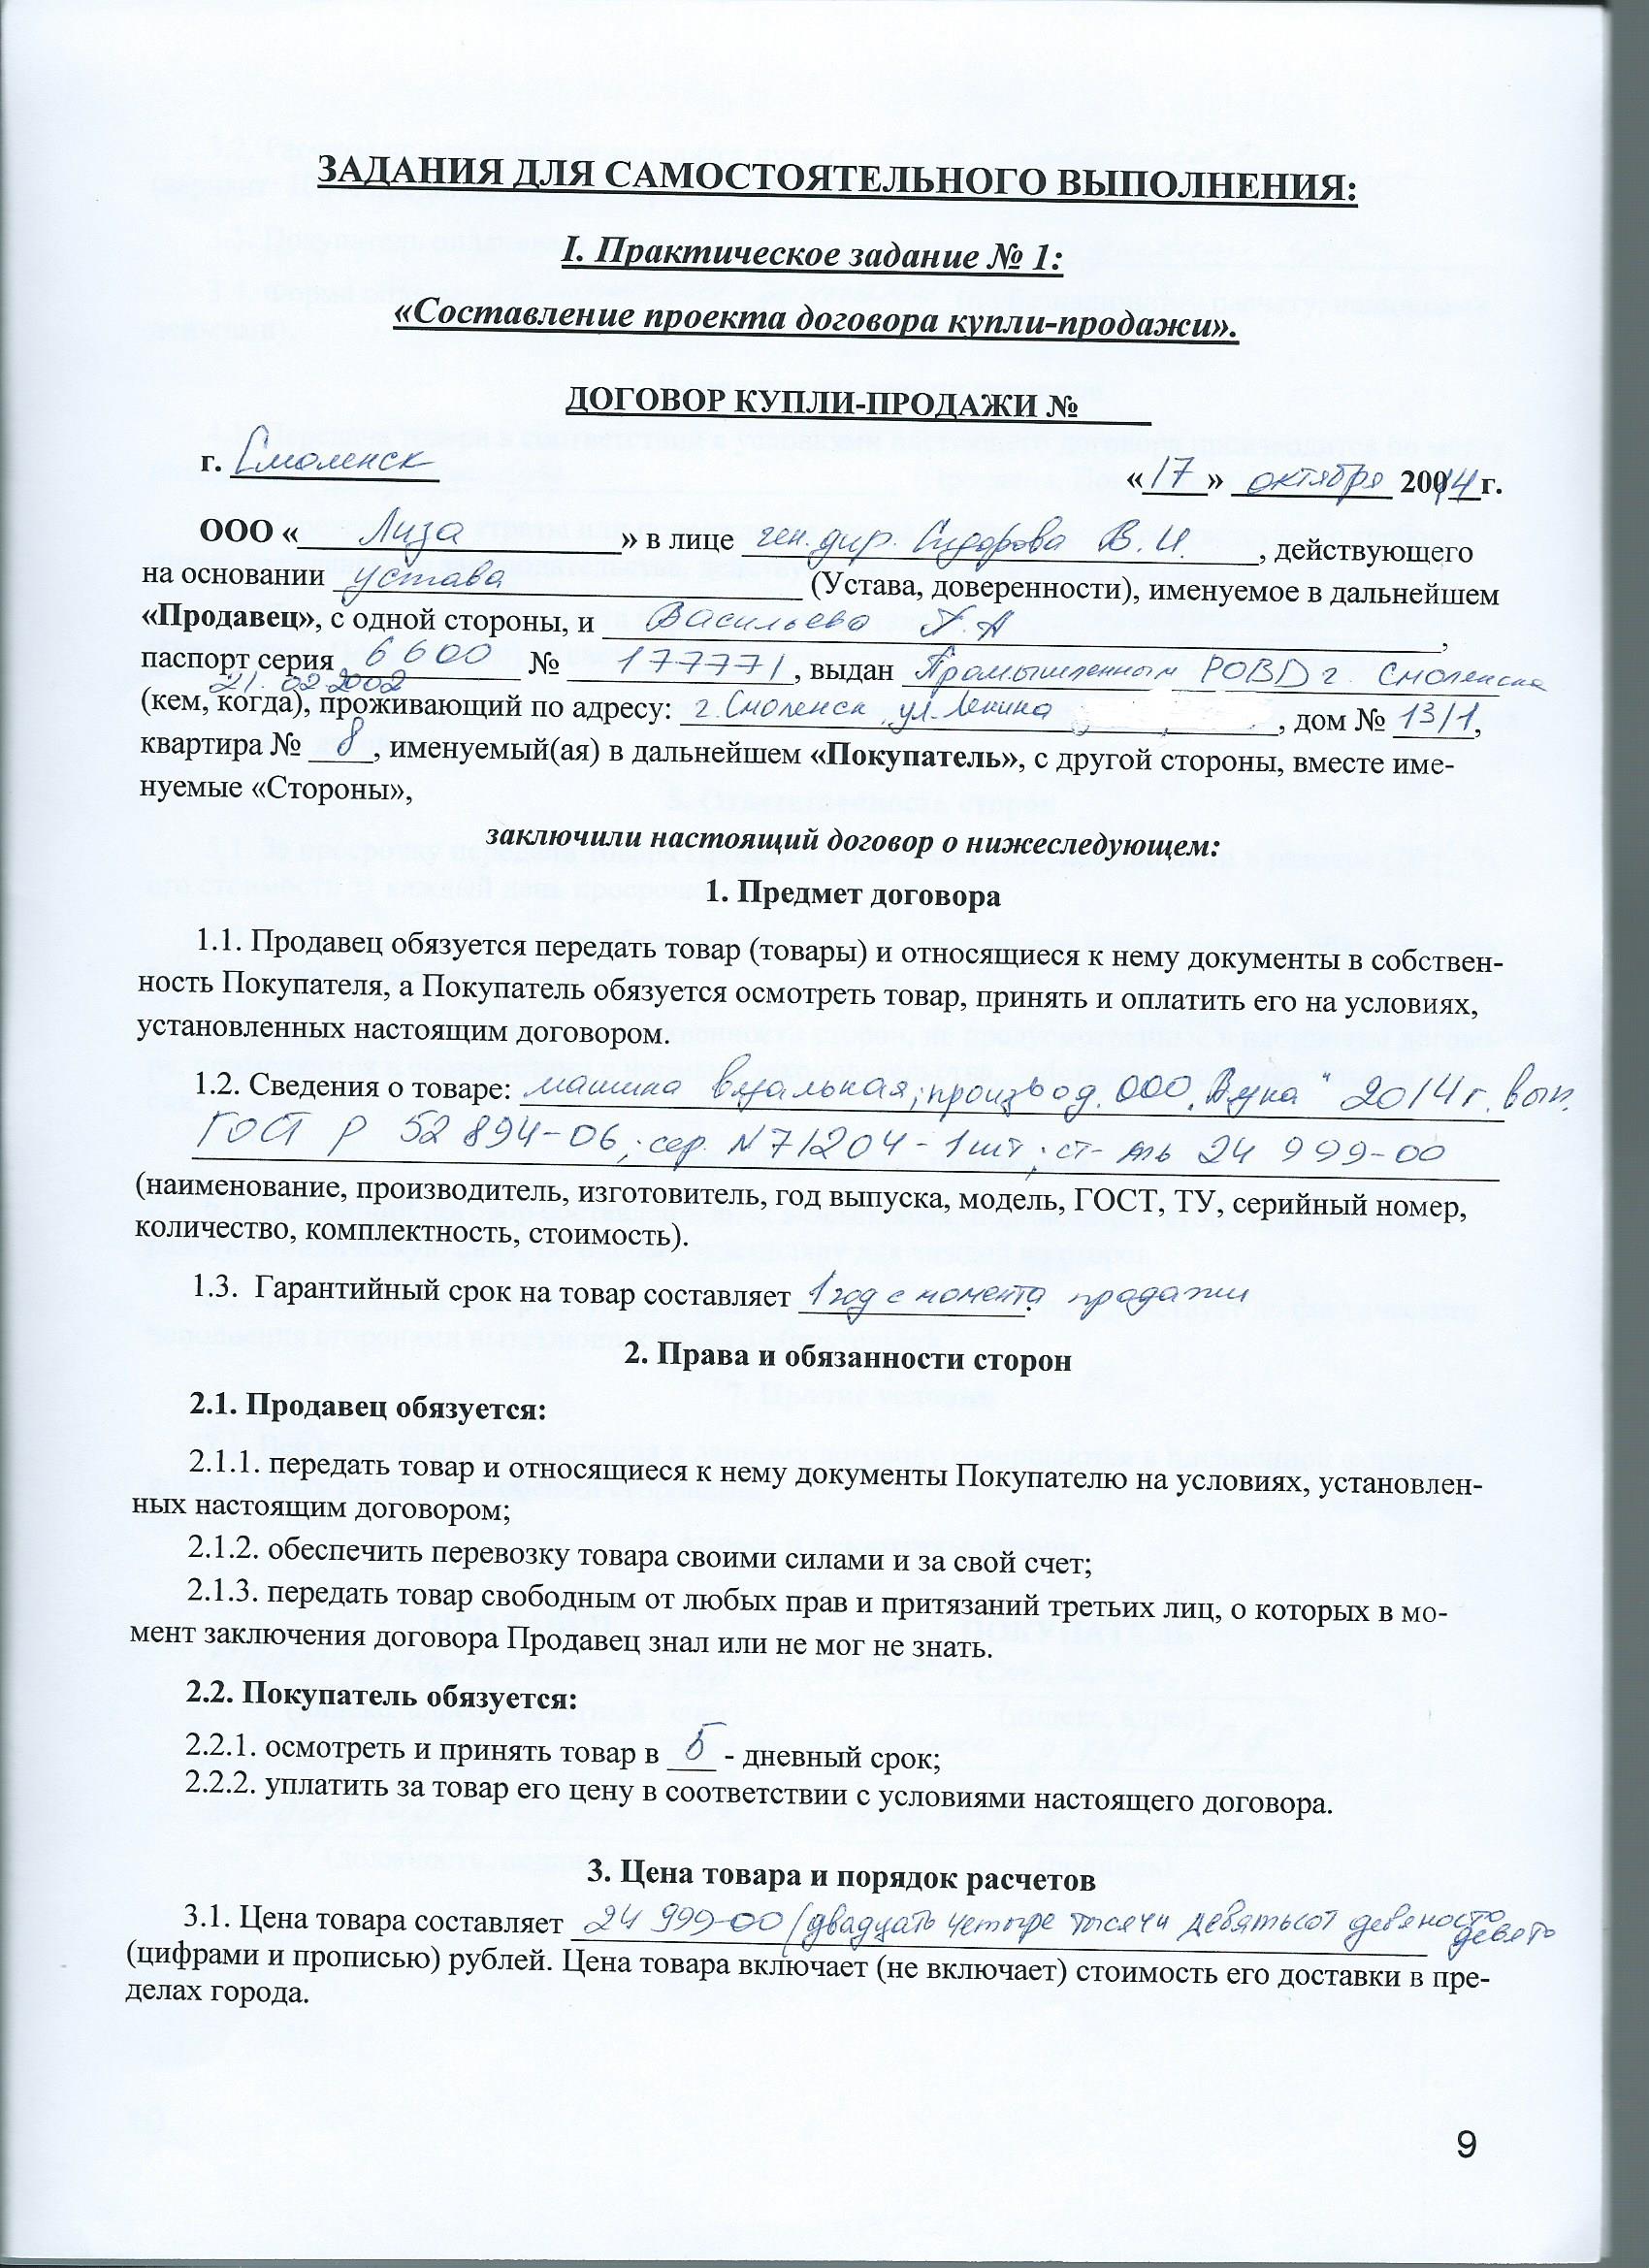 ЗАДАНИЯ ДЛЯ САМОСТОЯТЕЛЬНОГО ВЫПОЛНЕНИЯ:
I. Практическое задание № 1:
«Составление проекта договора купли-продажи».
ДОГОВОР КУПЛИ-ПРОДАЖИ № ____
г. Смоленск
«17» октября 20014г.
ООО «Лиза» в лице ген. дир. Сидорова В. И., действующего
на основании устава (Устава, доверенности), именуемое в дальнейшем
«Продавец», с одной стороны, и Васильева Т. А,
паспорт серия 6600 № 177771, выдан Промышленным РОВД г. Смоленска
21.02.2002
(кем, когда), проживающий по адресу: г. Смоленск, ул. Ленина, дом № 13/1,
квартира № 8, именуемый(ая) в дальнейшем «Покупатель», с другой стороны, вместе име-
нуемые «Стороны»,
заключили настоящий договор о нижеследующем:
1. Предмет договора
1.1. Продавец обязуется передать товар (товары) и относящиеся к нему документы в собствен-
ность Покупателя, а Покупатель обязуется осмотреть товар, принять и оплатить его на условиях,
установленных настоящим договором.
1.2. Сведения о товаре: машина вязальная; производ. ООО 2014 г. вып.
ГОСТ Р 52 894-06; сер. N71204 - 1 шт; ст-ть 24 999-00
(наименование, производитель, изготовитель, год выпуска, модель, ГОСТ, ТУ, серийный номер,
количество, комплектность, стоимость).
1.3. Гарантийный срок на товар составляет 1 год с момента продажи.
2. Права и обязанности сторон
2.1. Продавец обязуется:
2.1.1. передать товар и относящиеся к нему документы Покупателю на условиях, установлен-
ных настоящим договором;
2.1.2. обеспечить перевозку товара своими силами и за свой счет;
2.1.3. передать товар свободным от любых прав и притязаний третьих лиц, о которых в мо-
мент заключения договора Продавец знал или не мог не знать.
2.2. Покупатель обязуется:
2.2.1. осмотреть и принять товар в 5 - дневный срок;
2.2.2. уплатить за товар его цену в соответствии с условиями настоящего договора.
3. Цена товара и порядок расчетов
3.1. Цена товара составляет 24 999-00 (двадцать четыре тысячи девятьсот девяносто девять
(цифрами и прописью) рублей. Цена товара включает (не включает) стоимость его доставки в пре-
делах города.
9